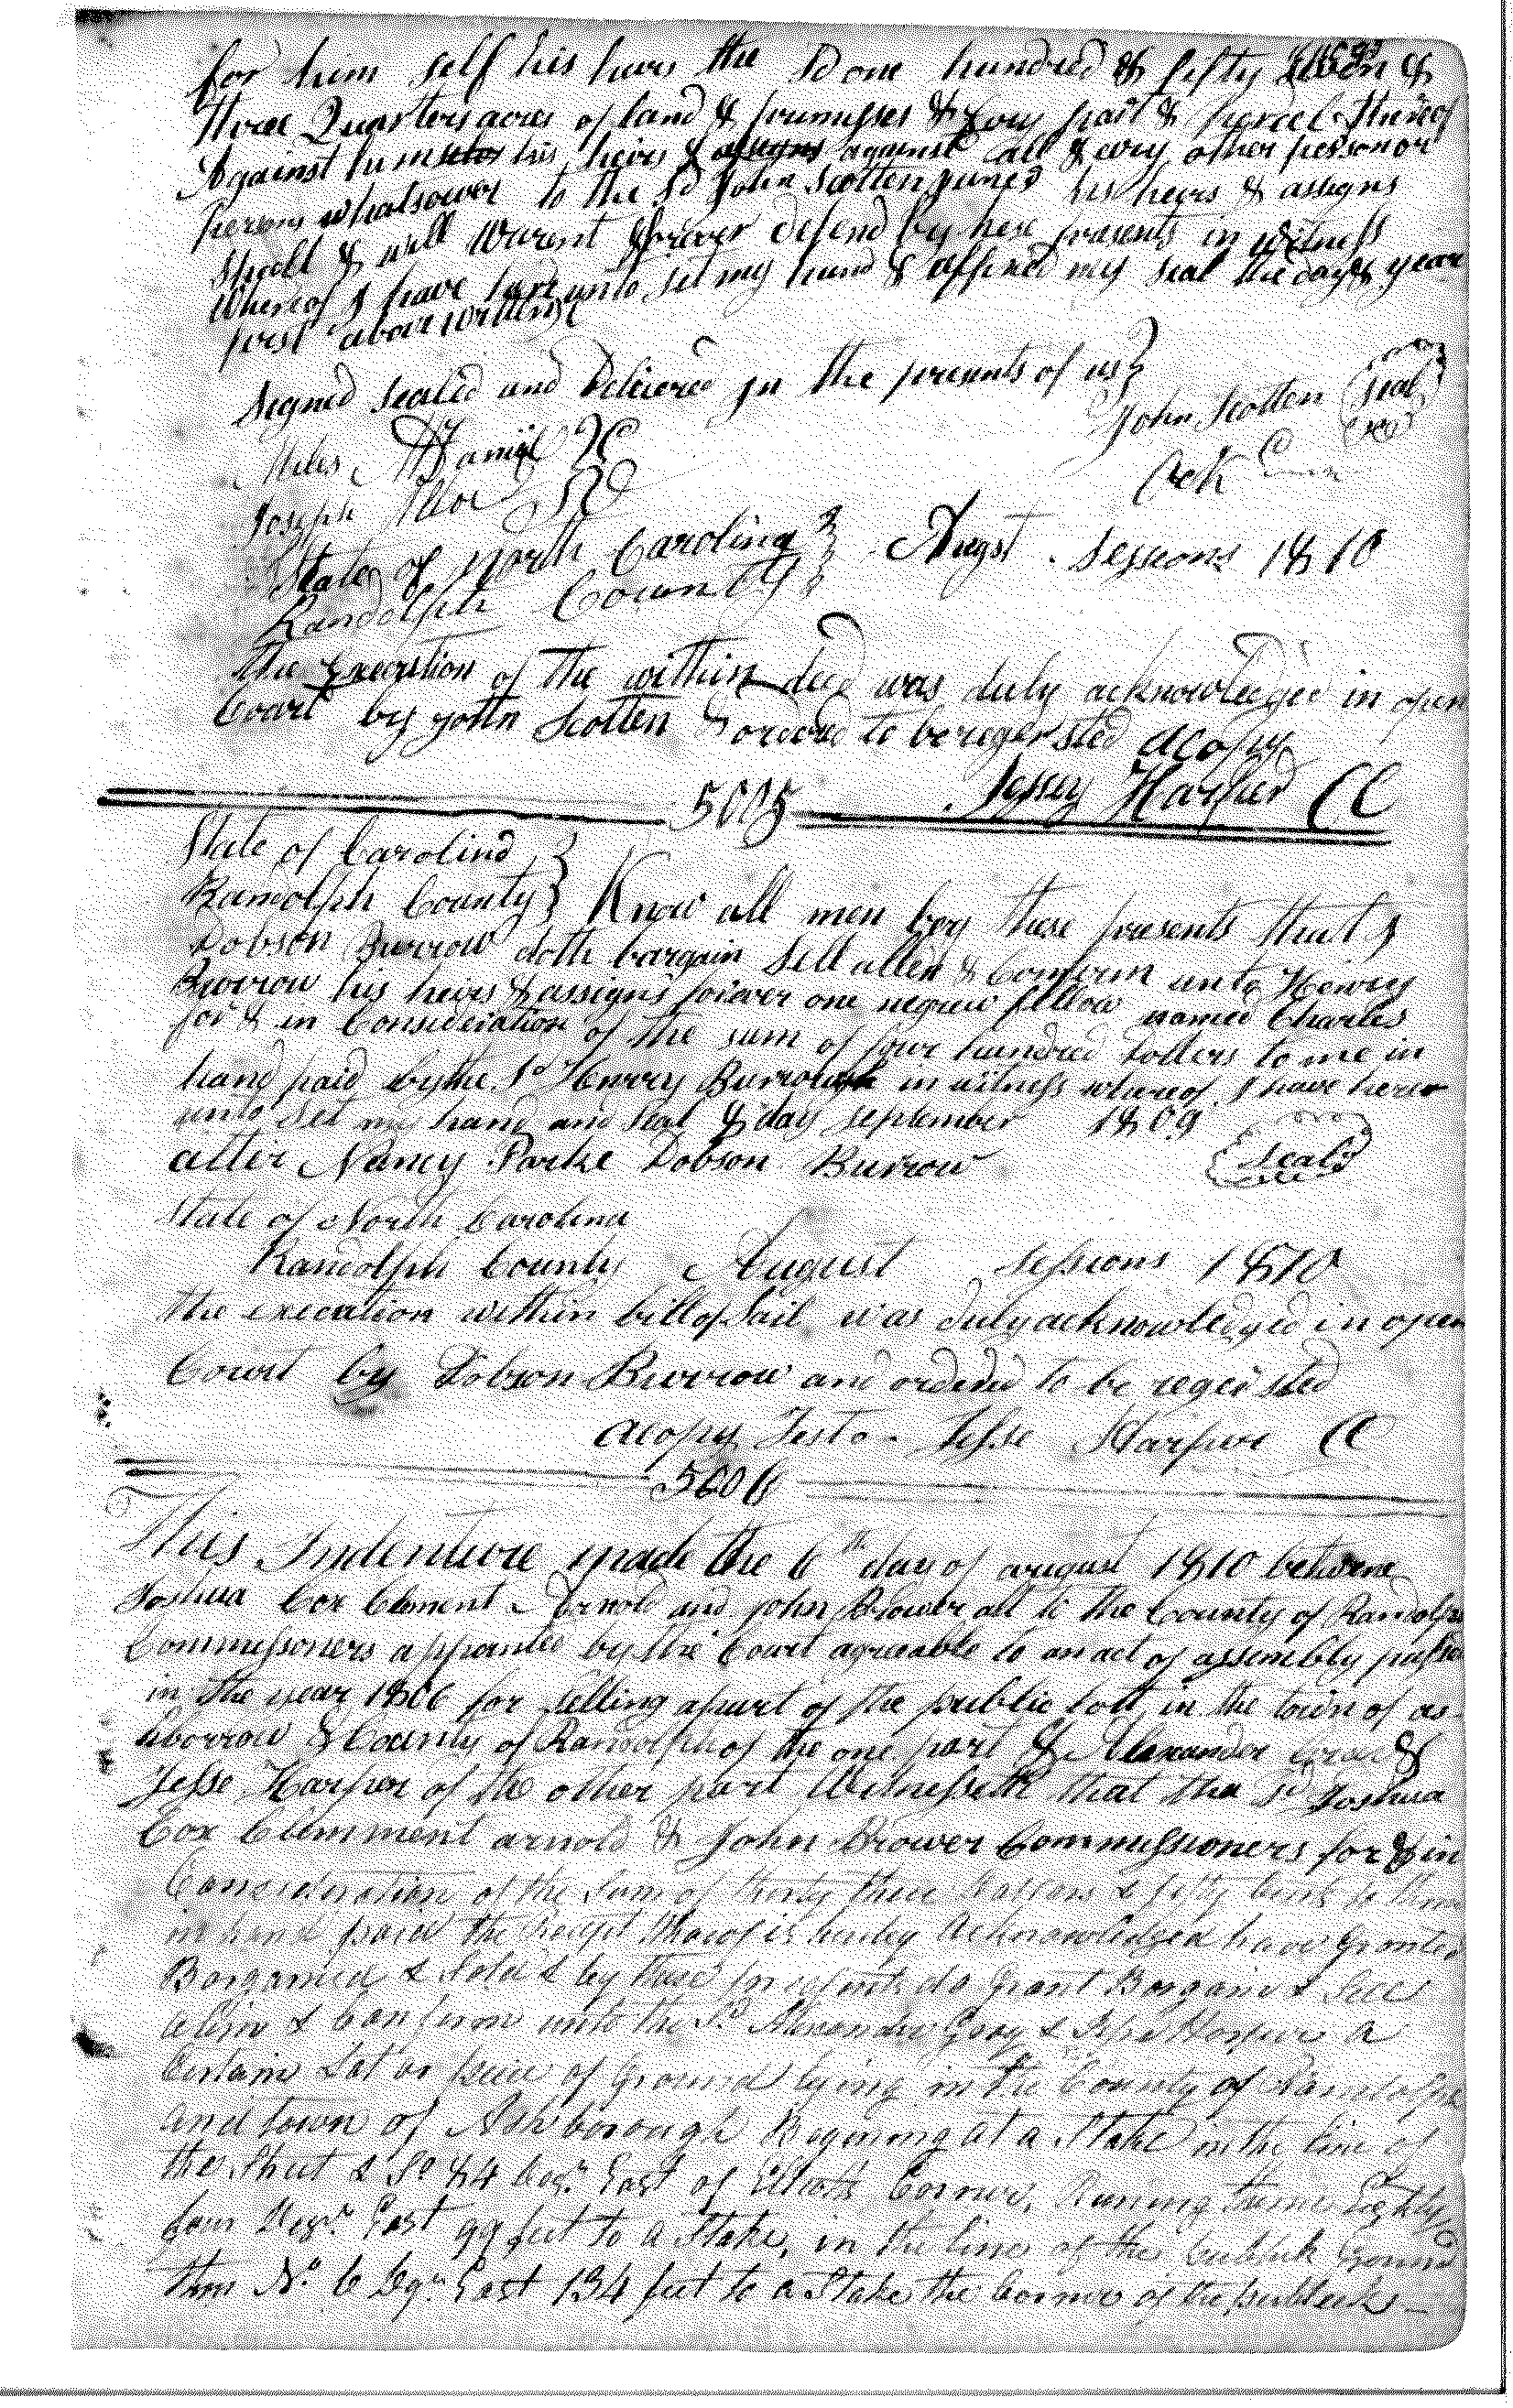 for him self his heirs the Sd one hundred & fifty &
three Quarters acres of land & premisses & every part & percel thereof
Against him his heirs & assigns against all & every other person or
persons whatsower to the Sd John Scotten juner his heirs & assigns
shall & will warent & forever defend by these presents in witness
Whereof I have here unto set my hand & affixed my seal the day & year
first above written
Signed sealed and Delivered in the presents of us
John Scotten seal
Ack
Joseph
State of North Carolina Augst Sessions 1810
Randolph County
the execution of the within deed was duly acknowledged in open
Court by John Scotten & ordered to be regersted a copy
Jessey Harper CC
5005
State of Carolina
Randolph County Know all men bey these presents that I
Dobson Burrow doth bargain sell allen & Confirm unto Henry
Burrow his heirs & assigns forever one negrew fellow named Charles
for & in Consideration of the sum of four hundred dollers to me in
hand paid by the Sd Henry Burrough in witness whareof I have here
unto set my hand and seal & day september 1809
attir Nancy Parke Dobson Burrow seal
State of North Carolina
Randolph County August sessions 1810
the execution within bill of Sail was duly acknowledged in open
Court by Dobson Burrow and ordered to be regersted
acopy Testo. Jesse Harper CC
This Indenture made the 6th day of august 1810 betwene
Joshua Cox Clement Arnold and john Brower all to the County of Randolph
Commissoners appointed by the Court agreeable to an act of assembly passed
in the year 1806 for selling apart of the public lott in the town of as-
borrow & County of Randolph of the one part & Alexander Gray &
Jesse Harper of the other part Witnesseth that the Sd Joshua
Cox Clemment arnold & John Brower Commissioners for & in
Consideration of the Sum of thirty three Dollars & fifty Cents to them
in hand paid the Receipt Whareof is hereby Acknowledged have Granted
Barganed & Sold & by these presents do Grant Bargain & Sell
alien & Confirm unto the Sd Alexander Gray & Jesse Harper a
Certain Lot or peice of Ground lying in the County of Randolph
and town of Ashborough Begining at a Stake in the line of
the Street & So 84 Degs. East of Elliotts Corner, Runing thence Eighty
four Degrs. East 99 feet to a Stake, in the line of the publick Ground
then No. 6 Dgrs East 134 feet to a Stake the Corner of the publicks